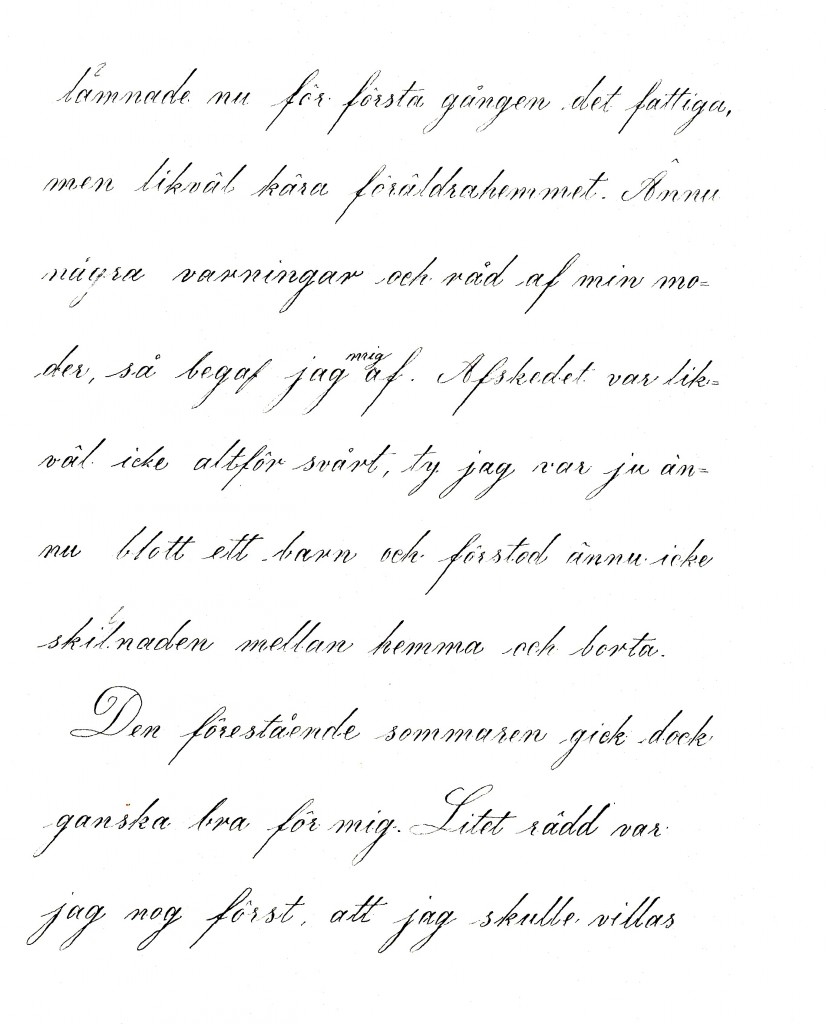 lämnade nu för första gången det fattiga,
men likväl kära föräldrahemmet. Ännu
några varningar och råd af min mo=
der, så begaf jag mig af. Afskedet var lik=
väl icke altför svårt, ty jag var ju än=
nu blott ett barn och förstod ännu icke
skilnaden mellan hemma och borta.
Den förestående sommaren gick dock
ganska bra för mig. Litet rädd var
jag nog först, att jag skulle villas